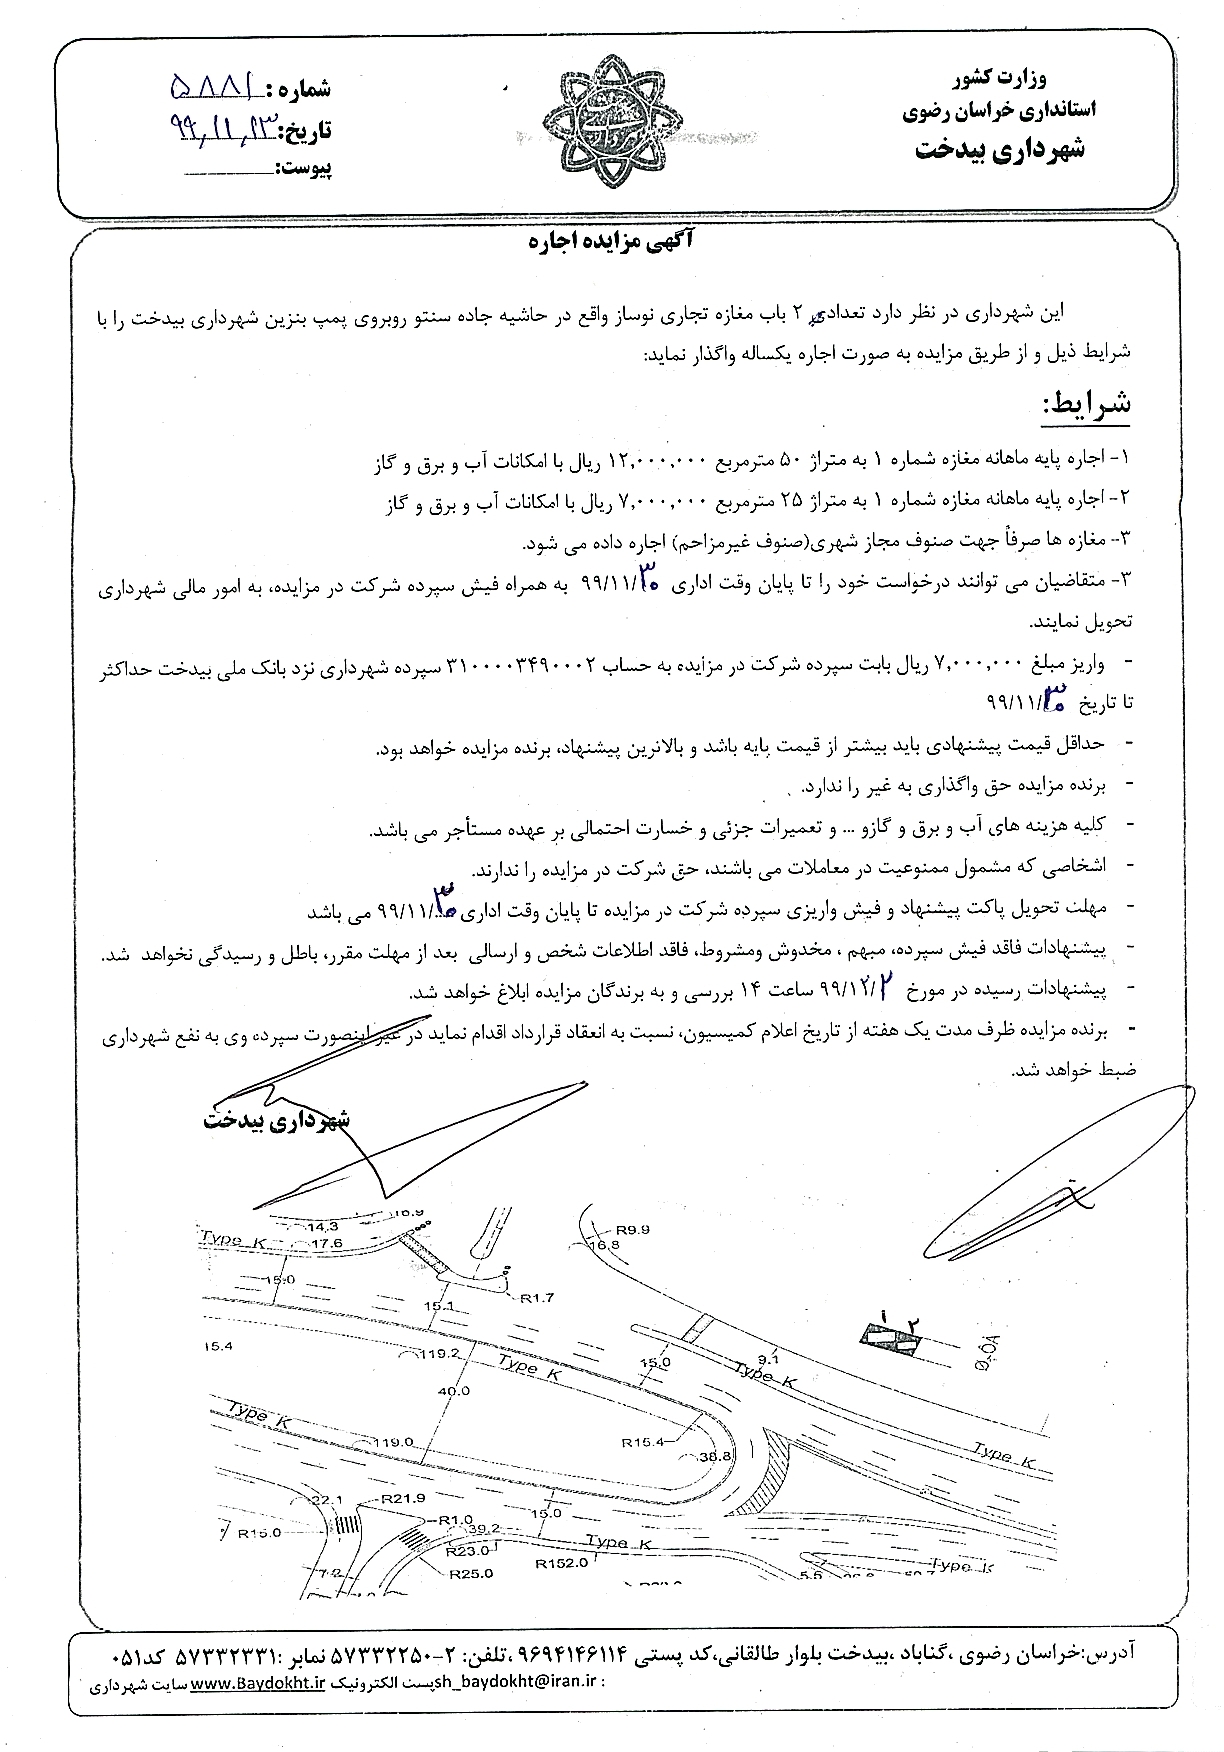 وزارت کشور
استانداری خراسان رضوی
شهرداری بیدخت
شماره: ۵۸۸۱
تاریخ: ۹۹/۱۱/۲۳
پیوست:
آگهی مزایده اجاره
این شهرداری در نظر دارد تعدادی ۲ باب مغازه تجاری نوساز واقع در حاشیه جاده سنتو روبروی پمپ بنزین شهرداری بیدخت را با
شرایط ذیل و از طریق مزایده به صورت اجاره یکساله واگذار نماید:
شرایط:
۱- اجاره پایه ماهانه مغازه شماره ۱ به متراژ ۵۰ مترمربع ۱۲,۰۰۰,۰۰۰ ریال با امکانات آب و برق و گاز
۲- اجاره پایه ماهانه مغازه شماره ۱ به متراژ ۲۵ مترمربع ۷,۰۰۰,۰۰۰ ریال با امکانات آب و برق و گاز
۳- مغازه ها صرفاً جهت صنوف مجاز شهری(صنوف غیرمزاحم) اجاره داده می شود.
۳- متقاضیان می توانند درخواست خود را تا پایان وقت اداری ۹۹/۱۱/۳۰ به همراه فیش سپرده شرکت در مزایده، به امور مالی شهرداری
تحویل نمایند.
- واریز مبلغ ۷,۰۰۰,۰۰۰ ریال بابت سپرده شرکت در مزایده به حساب ۳۱۰۰۰۰۳۴۹۰۰۰۲ سپرده شهرداری نزد بانک ملی بیدخت حداکثر
تا تاریخ ۹۹/۱۱/۳۰
- حداقل قیمت پیشنهادی باید بیشتر از قیمت پایه باشد و بالاترین پیشنهاد، برنده مزایده خواهد بود.
- برنده مزایده حق واگذاری به غیر را ندارد.
- کلیه هزینه های آب و برق و گازو ... و تعمیرات جزئی و خسارت احتمالی بر عهده مستأجر می باشد.
- اشخاصی که مشمول ممنوعیت در معاملات می باشند، حق شرکت در مزایده را ندارند.
- مهلت تحویل پاکت پیشنهاد و فیش واریزی سپرده شرکت در مزایده تا پایان وقت اداری ۹۹/۱۱/۳۰ می باشد
- پیشنهادات فاقد فیش سپرده، مبهم ، مخدوش ومشروط، فاقد اطلاعات شخص و ارسالی بعد از مهلت مقرر، باطل و رسیدگی نخواهد شد.
- پیشنهادات رسیده در مورخ ۹۹/۱۲/۲ ساعت ۱۴ بررسی و به برندگان مزایده ابلاغ خواهد شد.
- برنده مزایده ظرف مدت یک هفته از تاریخ اعلام کمیسیون، نسبت به انعقاد قرارداد اقدام نماید در غیر اینصورت سپرده وی به نفع شهرداری
ضبط خواهد شد.
شهرداری بیدخت
14.3 16.9
Type K 17.6
R9.9
16.8
15.0
15.1 R1.7
۱ ۲
15.4 119.2 Type K 15.0 9.1 Type K
40.0
Type K 119.0 R15.4 38.8 Type K
22.1 R21.9
R15.0 R1.0 39.2 15.0
R23.0 Type K
R25.0 R152.0 Type K
7.2 5.5
آدرس:خراسان رضوی ،گناباد ،بیدخت بلوار طالقانی،کد پستی ۹۶۹۴۱۴۶۱۱۴ ،تلفن: ۲-۵۷۳۳۲۲۵۰ نمابر :۵۷۳۳۲۳۳۱ کد۰۵۱
سایت شهرداری www.Baydokht.ir پست الکترونیک sh_baydokht@iran.ir :